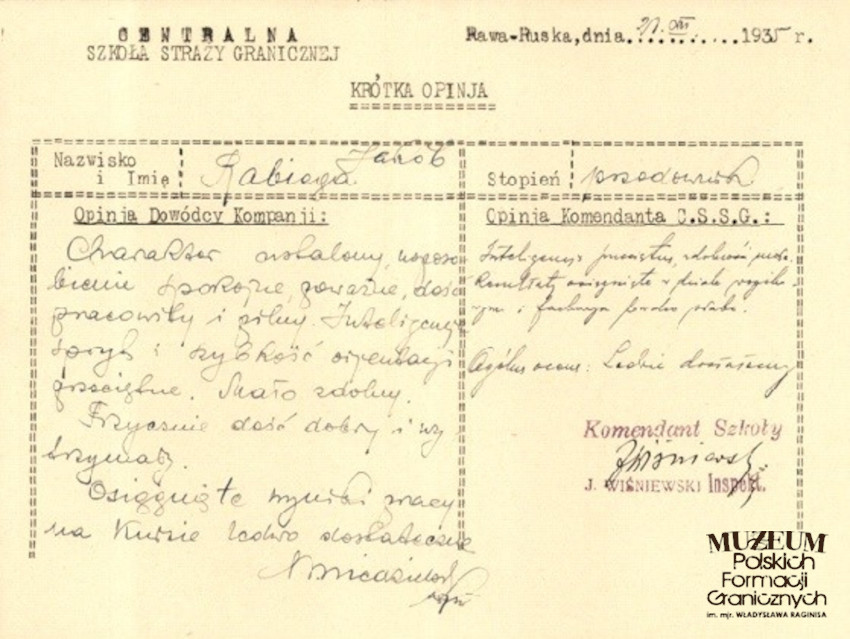 CENTRALNA
SZKOŁA STRAŻY GRANICZNEJ
Rawa-Ruska, dnia 1935 r.
KRÓTKA OPINJA
Nazwisko
i Imię : Rabiega Jakób
Stopień : przodownik
Opinja Dowódcy Kompanji:
Charakter ustalony, usposo-
bienie spokojne, poważne, dość
pracowity i pilny. Inteligencja
spryt i szybkość orjentacji
przeciętne. Mało zdolny.
Fizycznie dość dobry i wy-
trzymały.
Osiągnięte wyniki pracy
na Kursie ledwo dostateczne
Opinja Komendanta C.S.S.G.:
Inteligencja przeciętna, zdolność
Rezultaty osiągnięte w dziale
i fachowym bardzo słabe.
Ogólna ocena: Ledwie dostateczny
Komendant Szkoły
J. WIŚNIEWSKI Inspekt.
MUZEUM
Polskich
Formacji
Granicznych
im. mjr. WŁADYSŁAWA RAGINISA